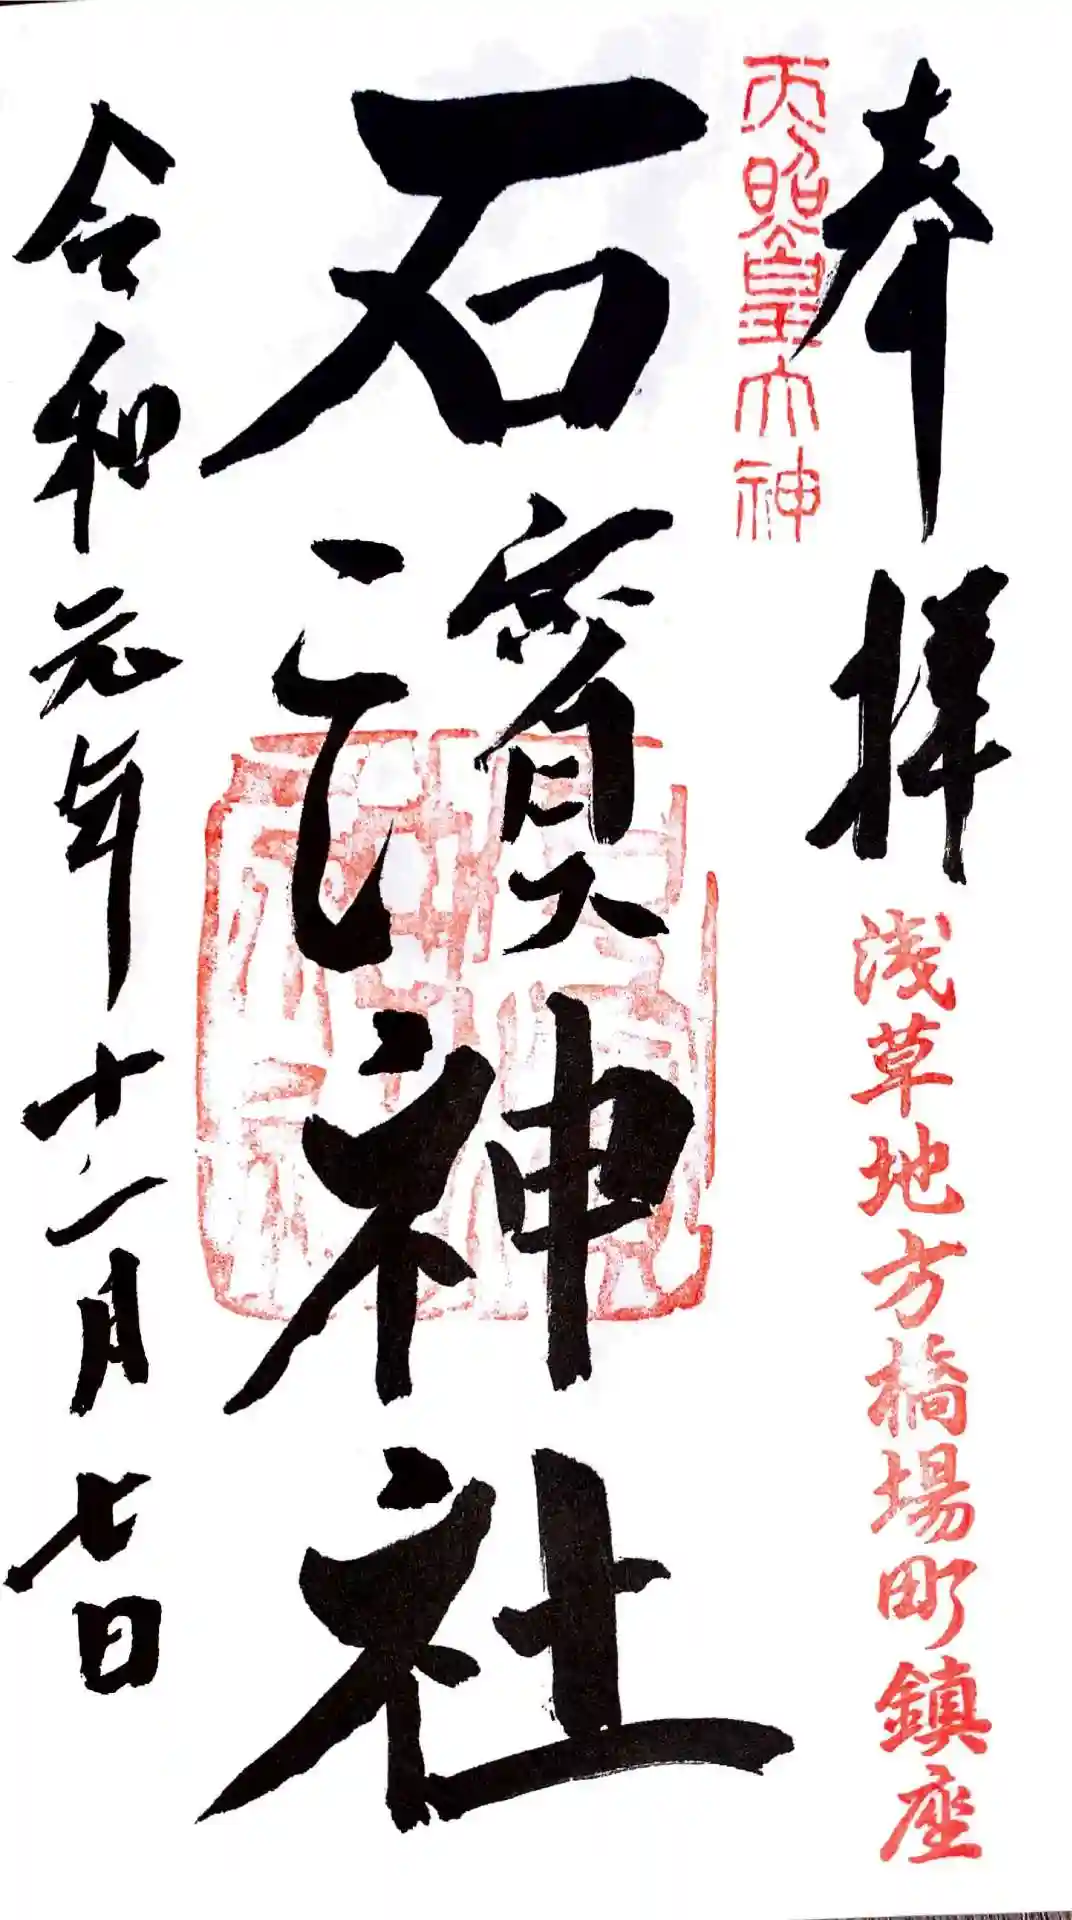 奉拝
浅草地方橋場町鎮座
天照皇大神
石濱神社
令和元年十二月七日